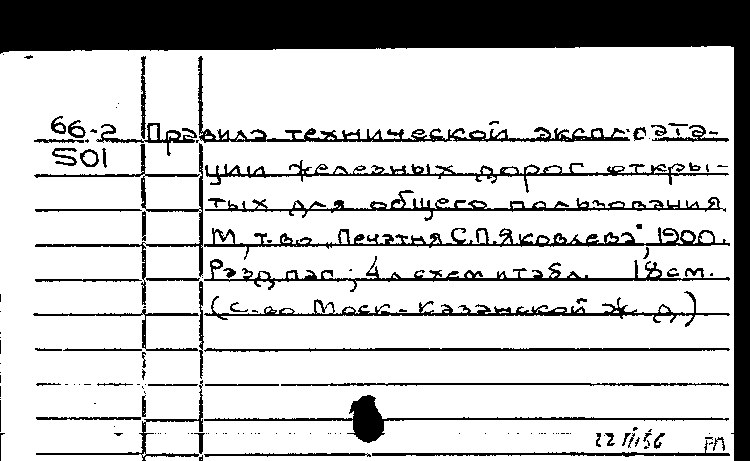 66-2 Правила технической эксплоата-
501 ции железных дорог откры-
тых для общего пользования.
М., т-во "Печатня С.П.Яковлева", 1900.
Разд. паг.; 4 л схем и табл. 18 см.
(О-во Моск.-Казанской ж. д.)
22 III 56